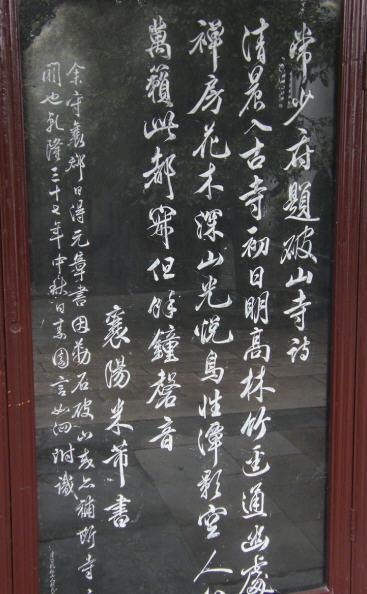 常少府題破山寺詩
清晨入古寺初日明高林竹逕通幽處
禪房花木深山光悅鳥性潭影空人
萬籟此都寂但餘鐘磬音
襄陽米芾書
余守襄郡日得元章書因勒石破山或亦補斯寺
闕也乾隆三十七年中秋日素園言如泗附識